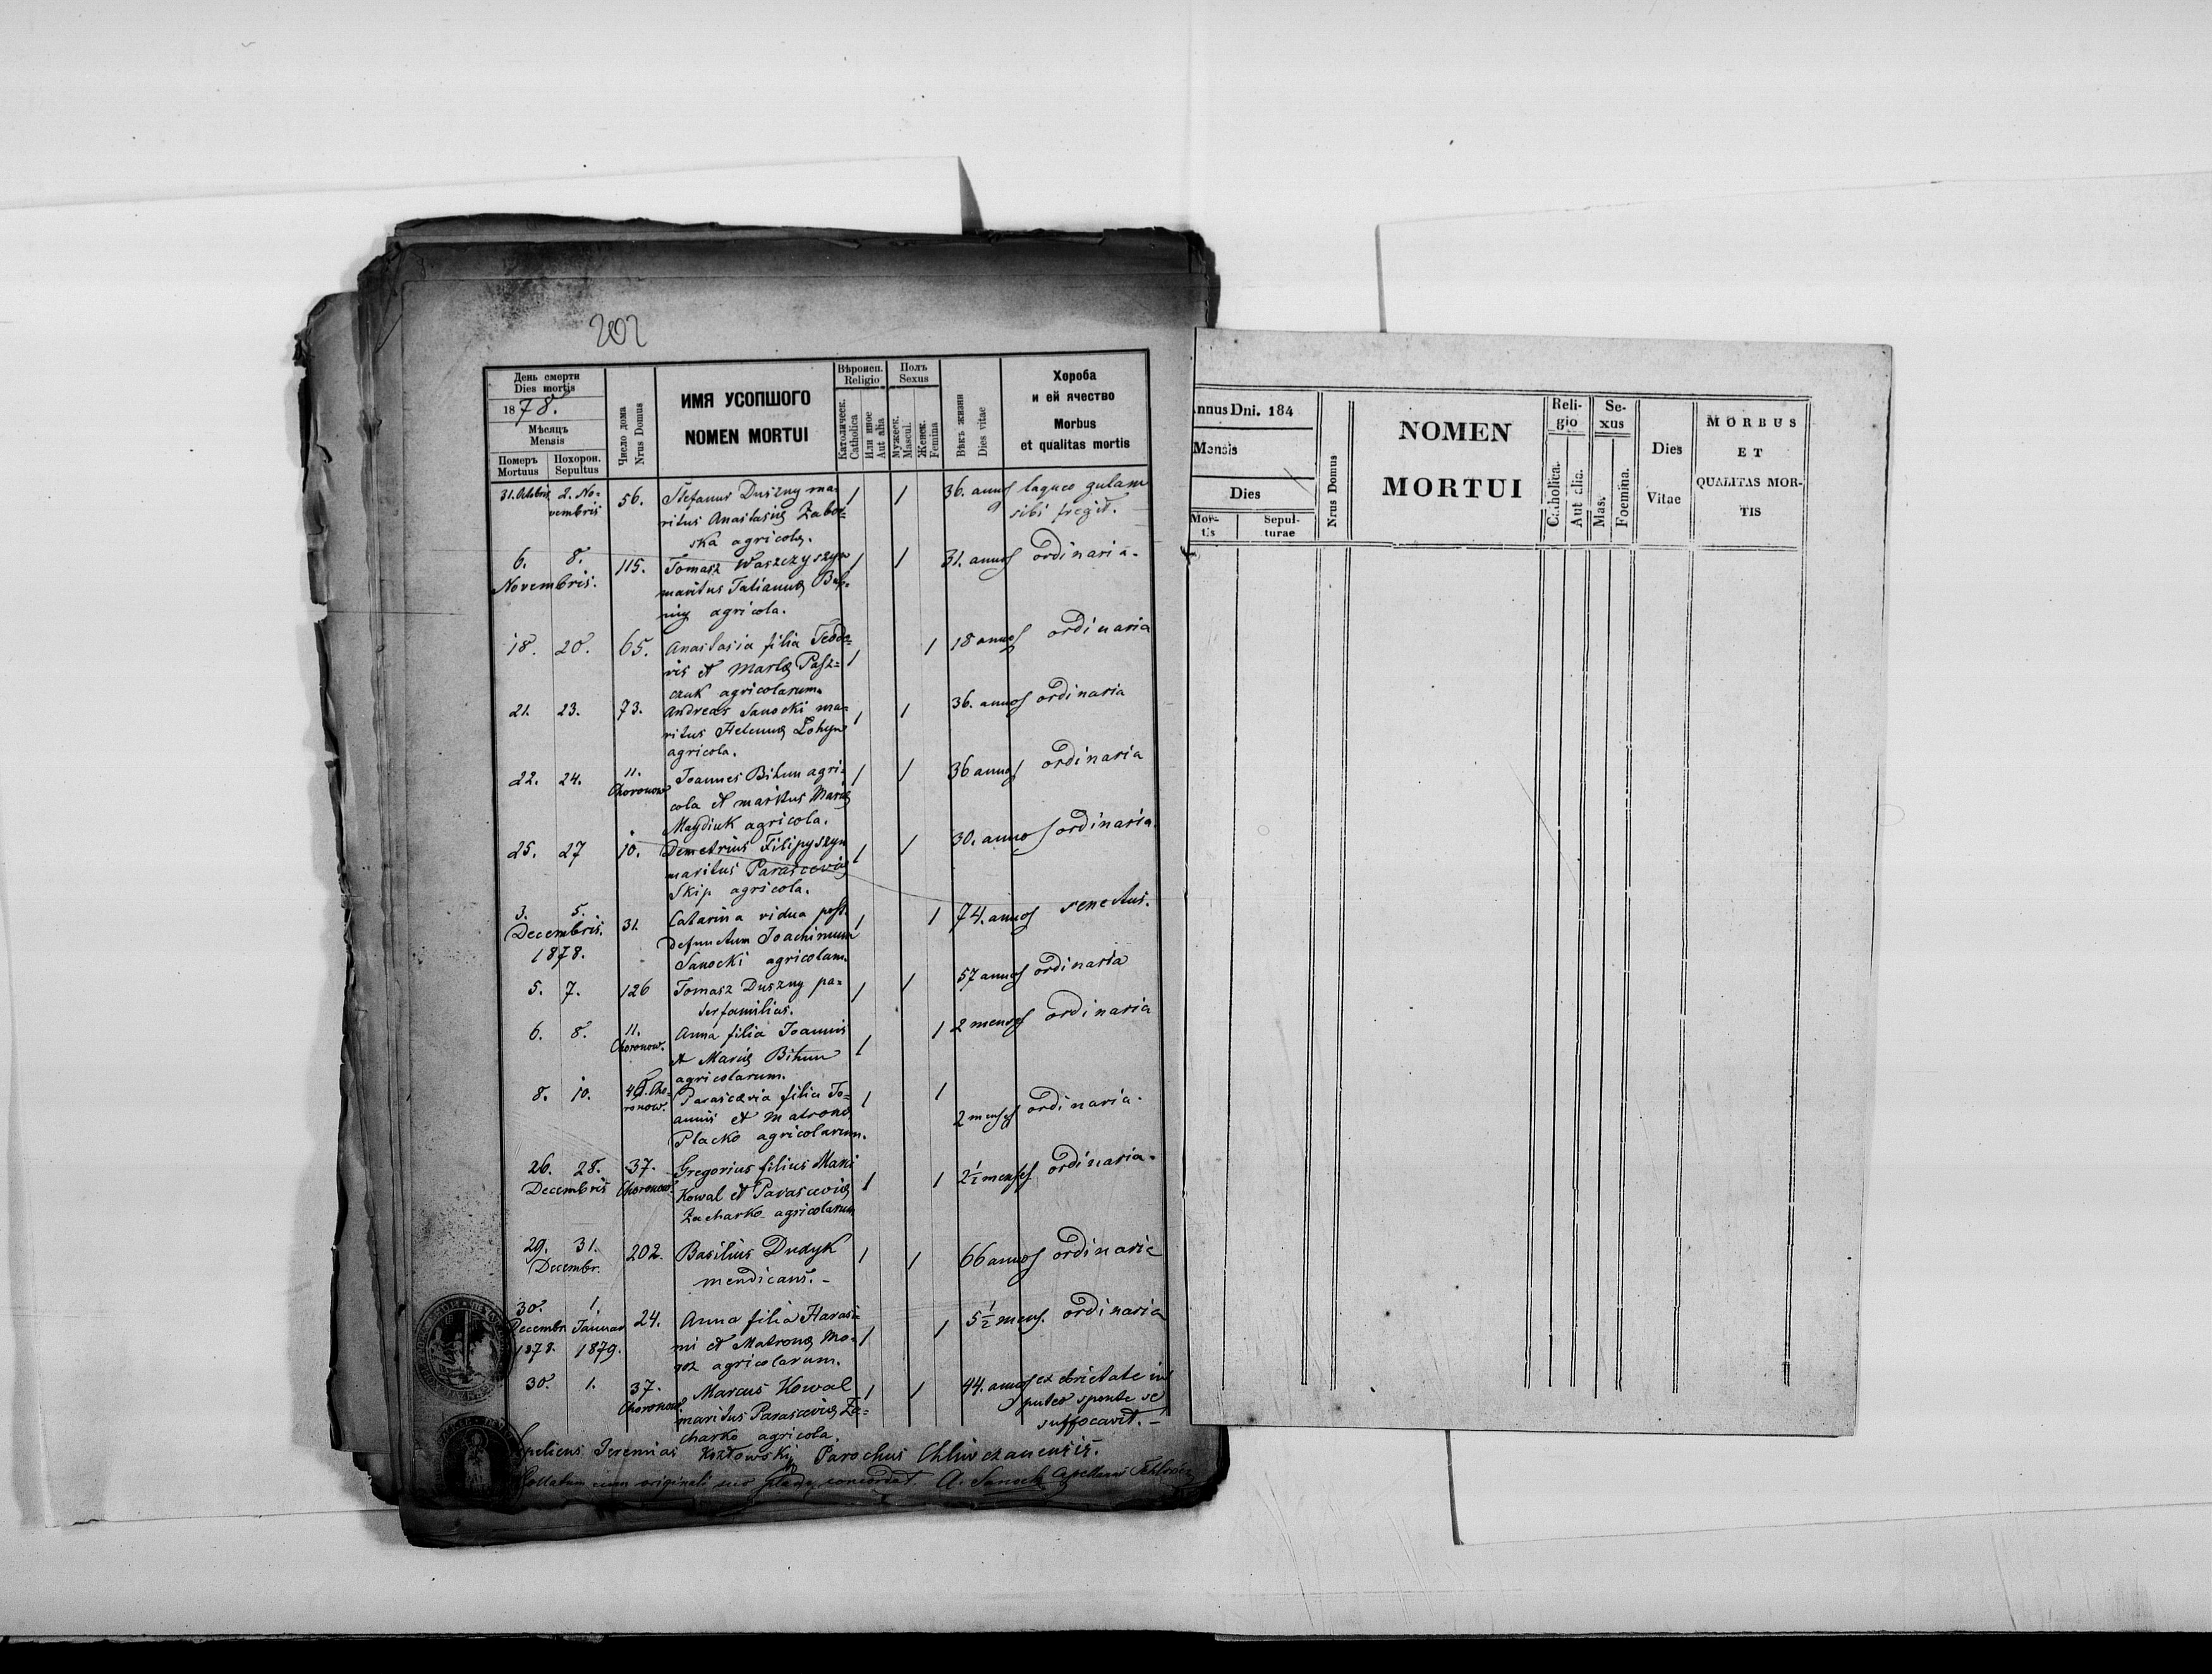 202
День смерти
Dies mortis
1878.
Мѣсяцъ
Mensis
Померъ Похорон.
Mortuus Sepultus
Число дома
Nrus Domus
ИМЯ УСОПШОГО
NOMEN MORTUI
Вѣроисп.
Religio
Католическ.
Catholica
Или иное
Aut alia
Полъ
Sexus
Мужеск.
Mascul.
Женск.
Femina
Вѣкъ жизни
Dies vitae
Хороба
и ей ячество
Morbus
et qualitas mortis
31. Octobris 2. No= 56. Stefanus Duszny ma= 1 1 36. annos laqueo gulam
vembris ritus Anastasiæ Zabor= sibi fregit.
ska agricola.
6. 8. 115. Tomasz Waszczyszyn 1 1 31. annos ordinaria.
Novembris. maritus Tatianæ
agricola.
18. 20. 65. Anastasia filia Teodo= 1 18 annos ordinaria
ris et Mariæ Pasz= 1
czuk agricolarum.
21. 23. 73. Andreas Sanocki ma= 1 1 36. annos ordinaria
ritus Helenæ Łohyn
agricola.
22. 24. 11. Joannes Bihun agri= 1 1 36 annos ordinaria
Choronow cola et maritus Mariæ
Maydiuk agricola.
25. 27 10. Demetrius Filipyszyn 1 1 30. annos ordinaria.
maritus Parasceviæ
Skip agricola.
3. 5. 31. Catarina vidua post 1 1 74. annos senectus.
Decembris. defunctum Joachimum
1878. Sanocki agricolam.
5. 7. 126 Tomasz Duszny pa= 1 1 57 annos ordinaria
terfamilias.
6. 8. 11. Anna filia Joannis 1 2 menses ordinaria
Choronow. et Mariæ Bihun 1
agricolarum.
8. 10. Cho= Parascevia filia Jo= 1 1
ronow. annis et Matronæ 2 menses ordinaria.
Placko agricolarum.
26. 28. 37. Gregorius filius Marci 1 1 2½ menses ordinaria.
Decembris Choronow. Kowal et Parasceviæ
Zacharko agricolarum
29. 31. 202. Basilius Dudyk 1 1 66 annos ordinaria
Decembr. mendicans. -
30. 1. 24. Anna filia Harasi= 1 5½ mens. ordinaria
Decembr. Januar mi et Matronæ Mo= 1
1878. 1879. roz agricolarum.
30. 1. 37. Marcus Kowal 1 1 44. annos ex ebrietate in
Choronow. maritus Parasceviæ Za= puteo sponte se
charko agricola. suffocavit. -
Jeremias Kozłowski Parochus Chliwczanensis.
Collatum cum originali suo concordat. A. Sanocki
Annus Dni. 184
Mensis
Dies
Mor-
tis
Sepul-
turae
Nrus Domus
NOMEN
MORTUI
Reli-
gio
Catholica.
Aut alia.
Se-
xus
Mas.
Foemina.
Dies
Vitae
MORBUS
ET
QUALITAS MOR-
TIS